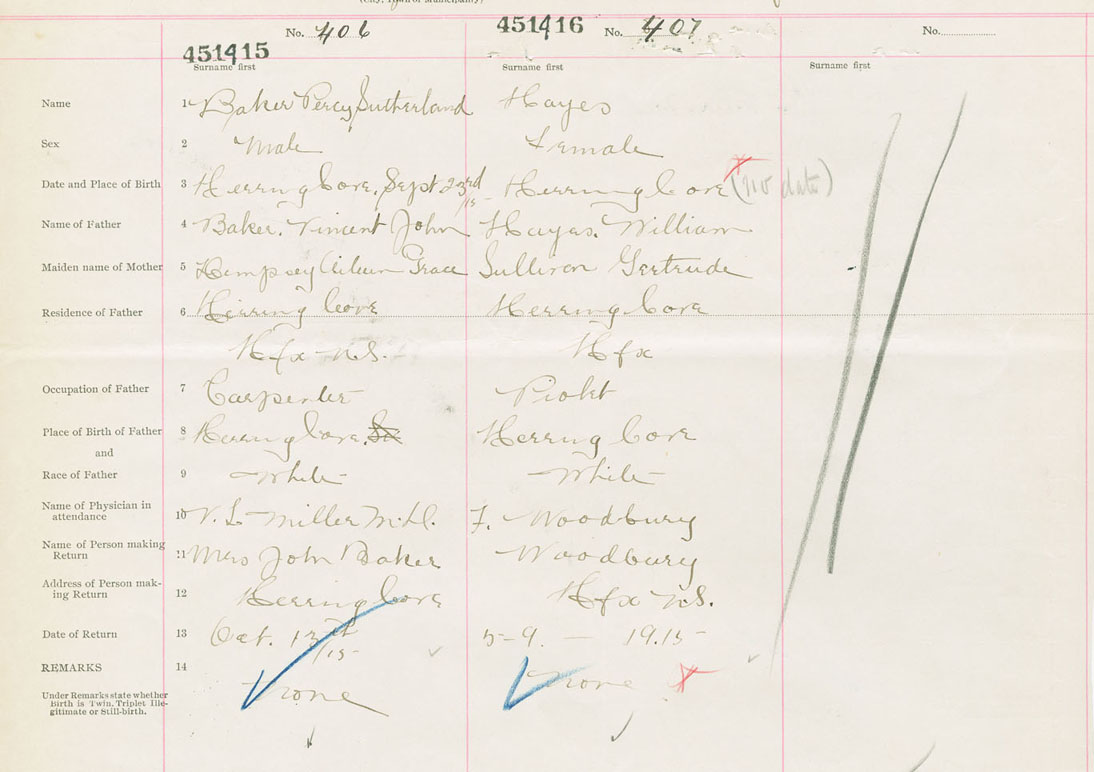 (City, Town or Municipality)
No. 406
451415
Surname first
451416
No. 407
Surname first
No.
Surname first
Name 1 Baker Percy Sutherland Hayes
Sex 2 Male Female
Date and Place of Birth 3 Herring Cove, Sept 23rd/15 Herring Cove (no date)
Name of Father 4 Baker. Vincent John Hayes. William
Maiden name of Mother 5 Hempsey Eileen Grace Sullivan Gertrude
Residence of Father 6 Herring Cove Herring Cove
Hfx N.S. Hfx
Occupation of Father 7 Carpenter
Place of Birth of Father 8 Herring Cove. Herring Cove
and
Race of Father 9 White White
Name of Physician in
attendance 10 V. L Miller M.D. F. Woodbury
Name of Person making
Return 11 Mrs John Baker Woodbury
Address of Person mak-
ing Return 12 Herring Cove Hfx N.S.
Date of Return 13 Oct. 13th/15 5-9 — 1915
REMARKS 14 None None
Under Remarks state whether
Birth is Twin, Triplet Ille-
gitimate or Still-birth.